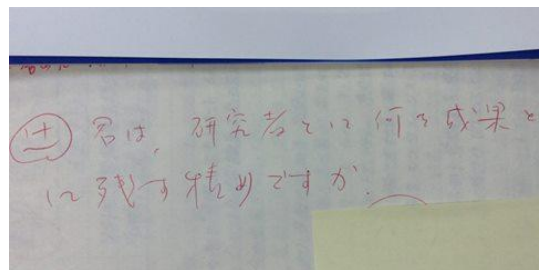 君は、研究者として何を成果と
して残す積りですか.